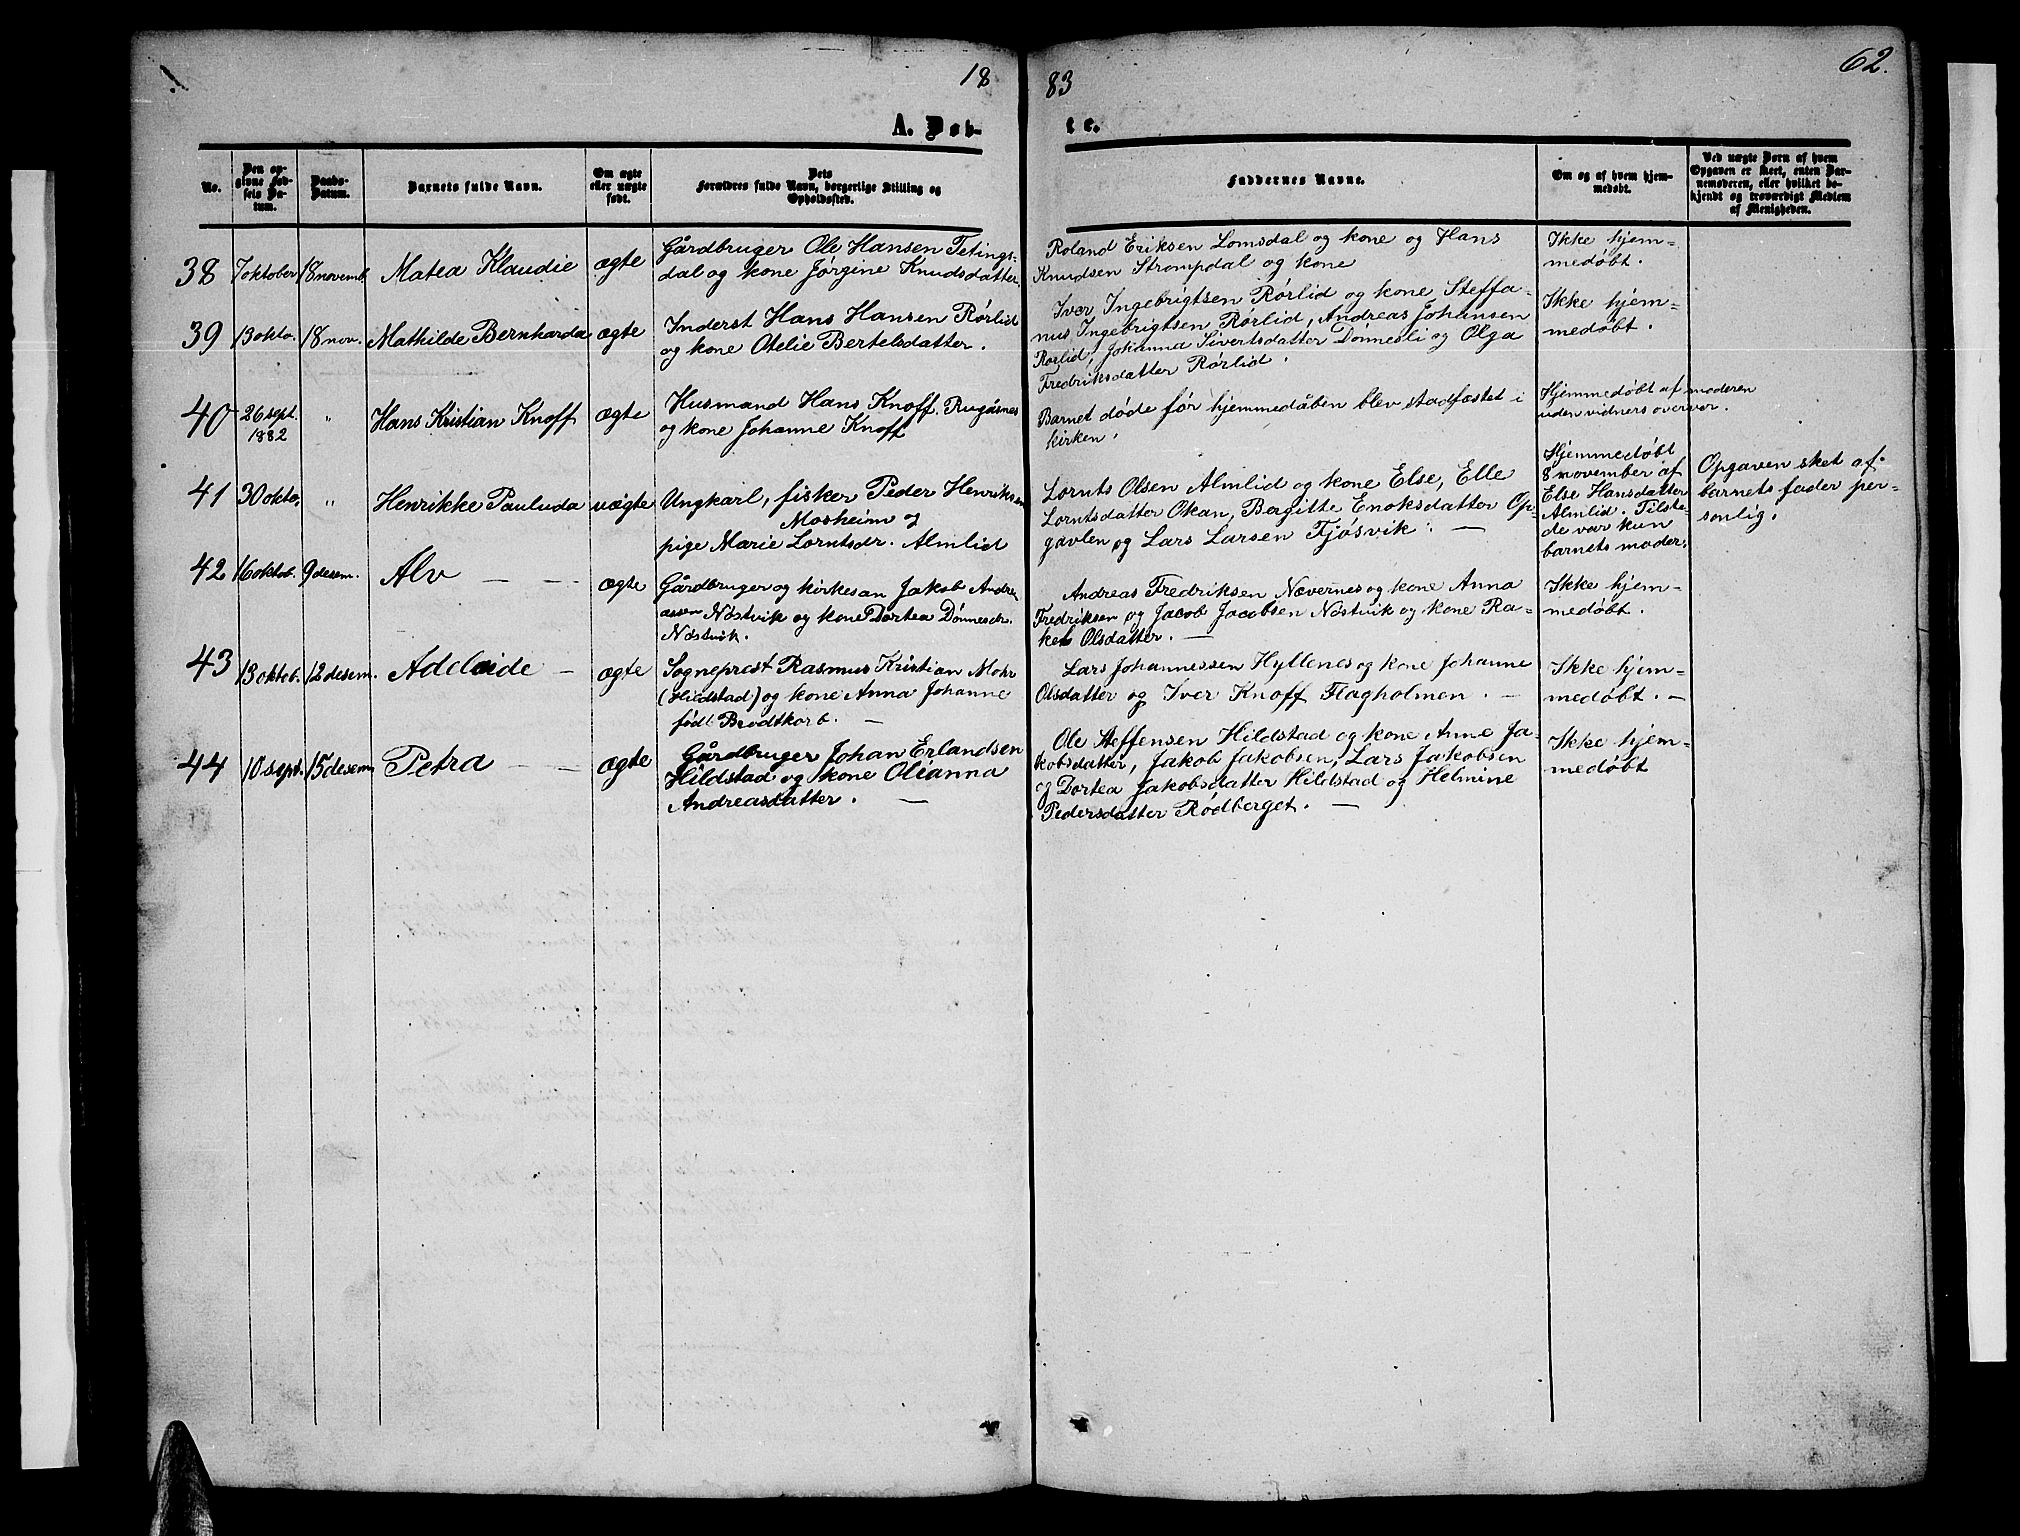 18
83
62.
A. Døb-
te.
No.
Den op-
givne Fød-
sels Da-
tum.
Daabs-
Datum.
Barnets fulde Navn.
Om ægte
eller uægte
født.
Dets
Forældres fulde Navn, borgerlige Stilling og
Opholdssted.
Faddernes Navne.
Om og af hvem hjem-
medøbt.
Ved uægte Børn af hvem
Opgaven er skeet, enten Bar-
nemoderen, eller hvilket be-
kjendt og troværdigt Medlem
af Menigheden.
38
7 oktober
18 novemb.
Matea Klaudie
ægte
Gårdbruger Ole Hansen Tetings-
dal og kone Jørgine Knudsdatter
Roland Eriksen Lomsdal og kone og Hans
Knudsen Strompdal og kone
Ikke hjem-
medøbt.
39
13 okto.
18 nov.
Mathilde Bernharda
ægte
Inderst Hans Hansen Rørlid
og kone Otelie Bertelsdatter.
Iver Ingebrigtsen Rørlid og kone Steffa-
nus Ingebrigtsen Rørlid, Andreas Johansen
Rørlid, Johanna Sivertsdatter Dønnesli og Olga
Fredriksdatter Rørlid.
Ikke hjem-
medøbt.
40
26 sept.
1882
"
Hans Kristian Knoff
ægte
Husmand Hans Knoff, Rugåsnes
og kone Johanne Knoff
Barnet døde før hjemmedåben blev stadfæstet i
kirken.
Hjemmedøbt af moderen
uden vidners overvær.
41
30 okto.
"
Henrikke Pauluda
uægte
Ungkarl, fisker Peder Henriksen
Mosheim og
pige Marie Lorntsdr. Almlid
Lornts Olsen Almlid og kone Else, Elle
Lorntsdatter Okan, Bergitte Enoksdatter Op-
gavlen og Lars Larsen Fjøsvik. —
Hjemmedøbt
8 november af
Else Hansdatter
Almlid. Tilste-
de var kun
barnets moder.
Opgaven sket af
barnets fader per-
sonlig.
42
16 oktob.
9 desem.
Alv — —
ægte
Gårdbruger og kirkesan Jakob Andre
asen Nøstvik og kone Dortea Dønnesdr.
Nøstvik.
Andreas Fredriksen Nævernes og kone Anna
Fredriksen og Jacob Jacobsen Nøstvik og kone Ra-
kel Olsdatter. —
Ikke hjem-
medøbt.
43
13 oktob.
12 desem.
Adelaide —
ægte
Sogneprest Rasmus Kristian Mohr
(Hildstad) og kone Anna Johanne
født Brodtkorb. —
Lars Johannessen Hyllenes og kone Johanne
Olsdatter og Iver Knoff Flagholmen. —
Ikke hjem-
medøbt. —
44
10 sept.
15 desem
Petra — —
ægte
Gårdbruger Johan Erlandsen
Hildstad og kone Olianna
Andreasdatter. —
Ole Steffensen Hildstad og kone Anne Ja-
kobsdatter, Jakob Jakobsen, Lars Jakobsen
og Dortea Jakobsdatter Hildstad og Helmine
Pedersdatter Rødberget. —
Ikke hjem-
medøbt